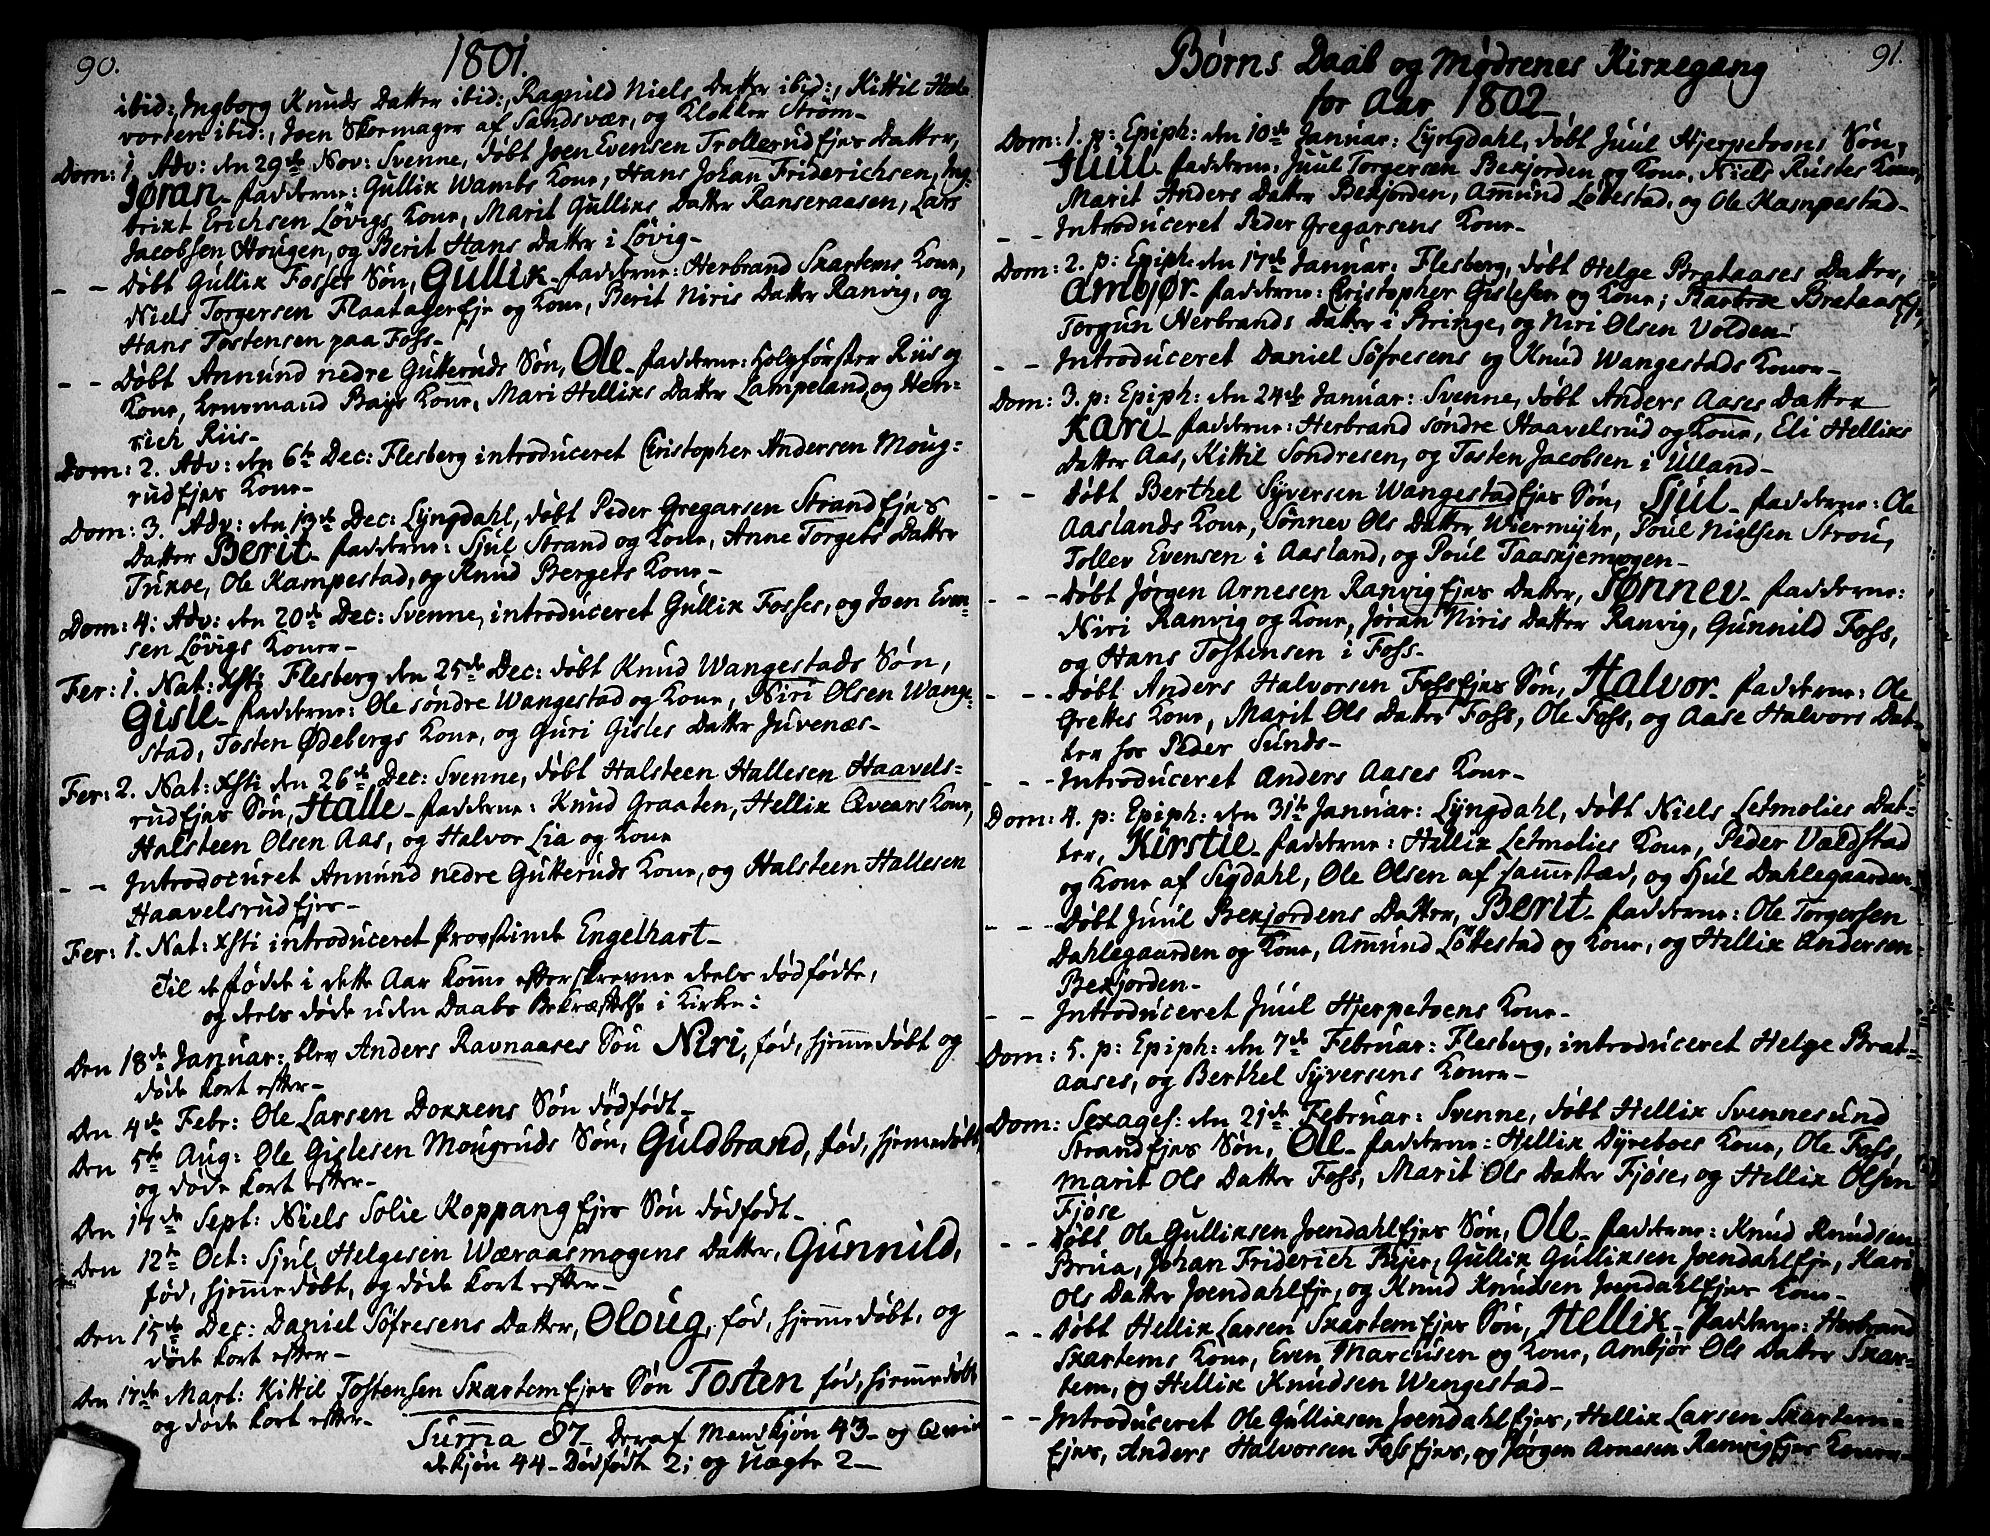 90.
1801.
ibid:, Ingborg Knuds Datter ibid:, Ragnild Niels Datter ibid:, Kittil Hal-
vorsen ibid:, Joen Skormager af Sandsvær, og Klokker Strøm-
Dom: 1. Adv: den 29de Nov: Svenne, døbt Joen Evensen TrollerudEjes Datter,
Jøran- fadderne: Gullix Wambs Kone, Hans Johan Friderichsen, Ing-
brixt Erichsen Løvigs Kone, Marit Gullixs Datter Ranseraasen, Lars
Jacobsen Hougen, og Berit Hans Datter i Løvig-
- - Døbt Gullix Fosses Søn, Gullix- fadderne: Herbrand Skartems Kone,
Niels Torgersen FlaatagerEje og Kone, Berit Niris Datter Ranvig, og
Hans Tostensen paa Foss-
- - Døbt Annund nedre Gutteruds Søn, Ole- fadderne: Holtzførster Riis og
Kone, Lensmand Bays Kone, Mari Hellixs Datter Lampeland, og Hen-
rich Riis-
Dom: 2. Adv: den 6te Dec: Flesberg introduceret Christopher Andersen Moug-
rudEjes Kone-
Dom: 3. Adv: den 13de Dec: Lyngdahl, døbt Peder Gregarsen StrandEjes
Datter Berit- fadderne: Sjul Strand og Kone, Anne Torgers Datter
Tuxoe, Ole Kampestad, og Knud Bergets Kone-
Dom: 4: Adv: den 20de Dec: Svenne, introduceret Gullix Fosses, og Joen Even-
sen Løvigs Koner-
Fer: 1. Nat: Xsti Flesberg den 25de Dec: døbt Knud Wangestads Søn,
Gisle- fadderne: Ole søndre Wangestad og Kone, Niri Olsen Wange-
stad, Tosten Ødebergs Kone, og Guri Gisles Datter Juvenæs-
Fer: 2. Nat: Xsti den 26de Dec: Svenne, døbt Halsteen Hallesen Haavels-
rudEjes Søn, Halle- fadderne: Knud Graaten, Hellix Qvears Kone,
Halsteen Olsen Aas, og Halvor Lia og Kone
- - Introducuret Annund nedre Gutteruds Kone, og Halsteen Hallesen
HaavelsrudEjes-
Fer: 1. Nat: Xsti introduceret Provstinde Engelhart-
Til de fødde i dette Aar komme efterskrevne deels dødfødte,
og deels døde uden Daabs Bekræftelse i Kirke:
Den 18de Januar: blev Anders Ravnaases Søn Niri, fød, hjemmedøbt og
døde kort efter-
Den 4de Febr: Ole Larsen Dokkens Søn dødfødt-
Den 5te Aug: Ole Gislesen Mougruds Søn, Guldbrand, fød, hjemmedøbt,
og døde kort efter-
Den 17de Sept: Niels Solie KoppangEjes Søn dødfødt-
Den 12te Oct: Sjul Helgesen Wæraasmogens Datter, Gunnild,
fød, hjemmedøbt, og døde kort efter-
Den 15de Dec: Daniel Søfresens Datter, Oloug, fød, hjemmedøbt, og
døde kort efter-
Den 17de Mart: Kittil Tostensen SkartemEjes Søn Tosten fød, hjemmedøbt
og døde kort efter-
Summa 87- Deraf Mandkjøn 43- og Qvin
dekjøn 44- Dødfødte 2; og Uægte 2-
91.
Børns Daab og Mødrenes Kirkegang
for Aar 1802-
Dom: 1. p: Epiph: den 10de Januar: Lyngdahl, døbt Juul Hjerpetoens Søn,
Juul- fadderne: Juul Torgersen Bekjorden og Kone, Niels Rustes Kone,
Marit Anders Datter Bekjorden, Amund Løvestad, og Ole Kampestad-
- - Introduceret Peder Gregarsens Kone-
Dom: 2. p: Epiph: den 17de Januar: Flesberg, døbt Helge Brataases Datter,
Ambjør- fadderne: Christopher Gislesen og Kone; BrataasEje,
Torgun Herbrands Datter i Bringe, og Niri Olsen Volden-
- - Introduceret Daniel Søfresens og Knud Wangestads Koner-
Dom: 3. p: Epiph: den 24de Januar: Svenne, døbt Anders Aases Datter
Kari- fadderne: Herbrand søndre Haavelsrud og Kone, Eli Hellixs
Datter Aas, Kittil Sondresen, og Tosten Jacobsen i Ulland-
- - Døbt Berthel Syversen WangestadEjes Søn, Sjul- fadderne: Ole
Aaslands Kone, Sønnev Ols Datter Wiermyhr, Poul Nielsen Strou,
Tollev Evensen i Aasland, og Poul Taaskjemogen-
- - - Døbt Jørgen Arnesen RanvigEjes Datter, Sønnev- fadderne:
Niri Ranvig og Kone, Jøran Niris Datter Ranvig, Gunnild Foss,
og Hans Tostensen i Foss-
- - - Døbt Anders Halvorsen FossEjes Søn, Halvor- fadderne: Ole
Grettes Kone, Marit Ols Datter Foss, Ole Foss, og Aase Halvors Dat-
ter hos Peder Sunds-
- - - Introduceret Anders Aases Kone-
Dom: 4. p: Epiph: den 31te Januar: Lyngdahl, døbt Niels Letmolies Dat-
ter, Kirstie- fadderne: Hellix Letmolies Kone, Peder Valdstad
og Kone af Sigdahl, Ole Olsen af sammestæd, og Hjul Dahlegaarden-
- - - Døbt Juul Bekjordens Datter, Berit- fadderne: Ole Torgersen
Dahlegaarden og Kone, Amund Løttestad og Kone, og Hellix Andersen
Bekjorden-
- - Introduceret Juul Hjerpetoens Kone-
Dom: 5. p: Epiph: den 7de Februar: Flesberg, introduceret Helge Brat-
aases, og Berthel Syversens Koner-
Dom: Sexages: den 21de Februar: Svenne, døbt Hellix Svennesund
StrandEjes Søn, Ole- fadderne: Hellix Dyreboes Kone, Ole Foss,
Marit Ols Datter Foss, Marit Ols Datter Fjøse, og Hellix Olsen
Fjøse
- - Døbt Ole Gullixsen JoendahlEjes Søn, Ole- fadderne: Knud Knudsen
Brua, Johan Friderich Bejer, Gullix Gullixsen JoendahlEje, Kari
Ols Datter JoendahlEje, og Knud Knudsen JoendahlEjes Kone-
- - Døbt Hellix Larsen SkartemEjes Søn, Hellix- fadderne: Herbrand
Skartems Kone, Even Marcusen og Kone, Ambjør Ols Datter Skar-
tem, og Hellix Knudsen Wengestad-
- - Introduceret Ole Gullixsen JoendahlEjes, Hellix Larsen Skartem-
Ejes, Anders Halvorsen FossEjes, og Jørgen Arnesen RanvigEjes Koner-